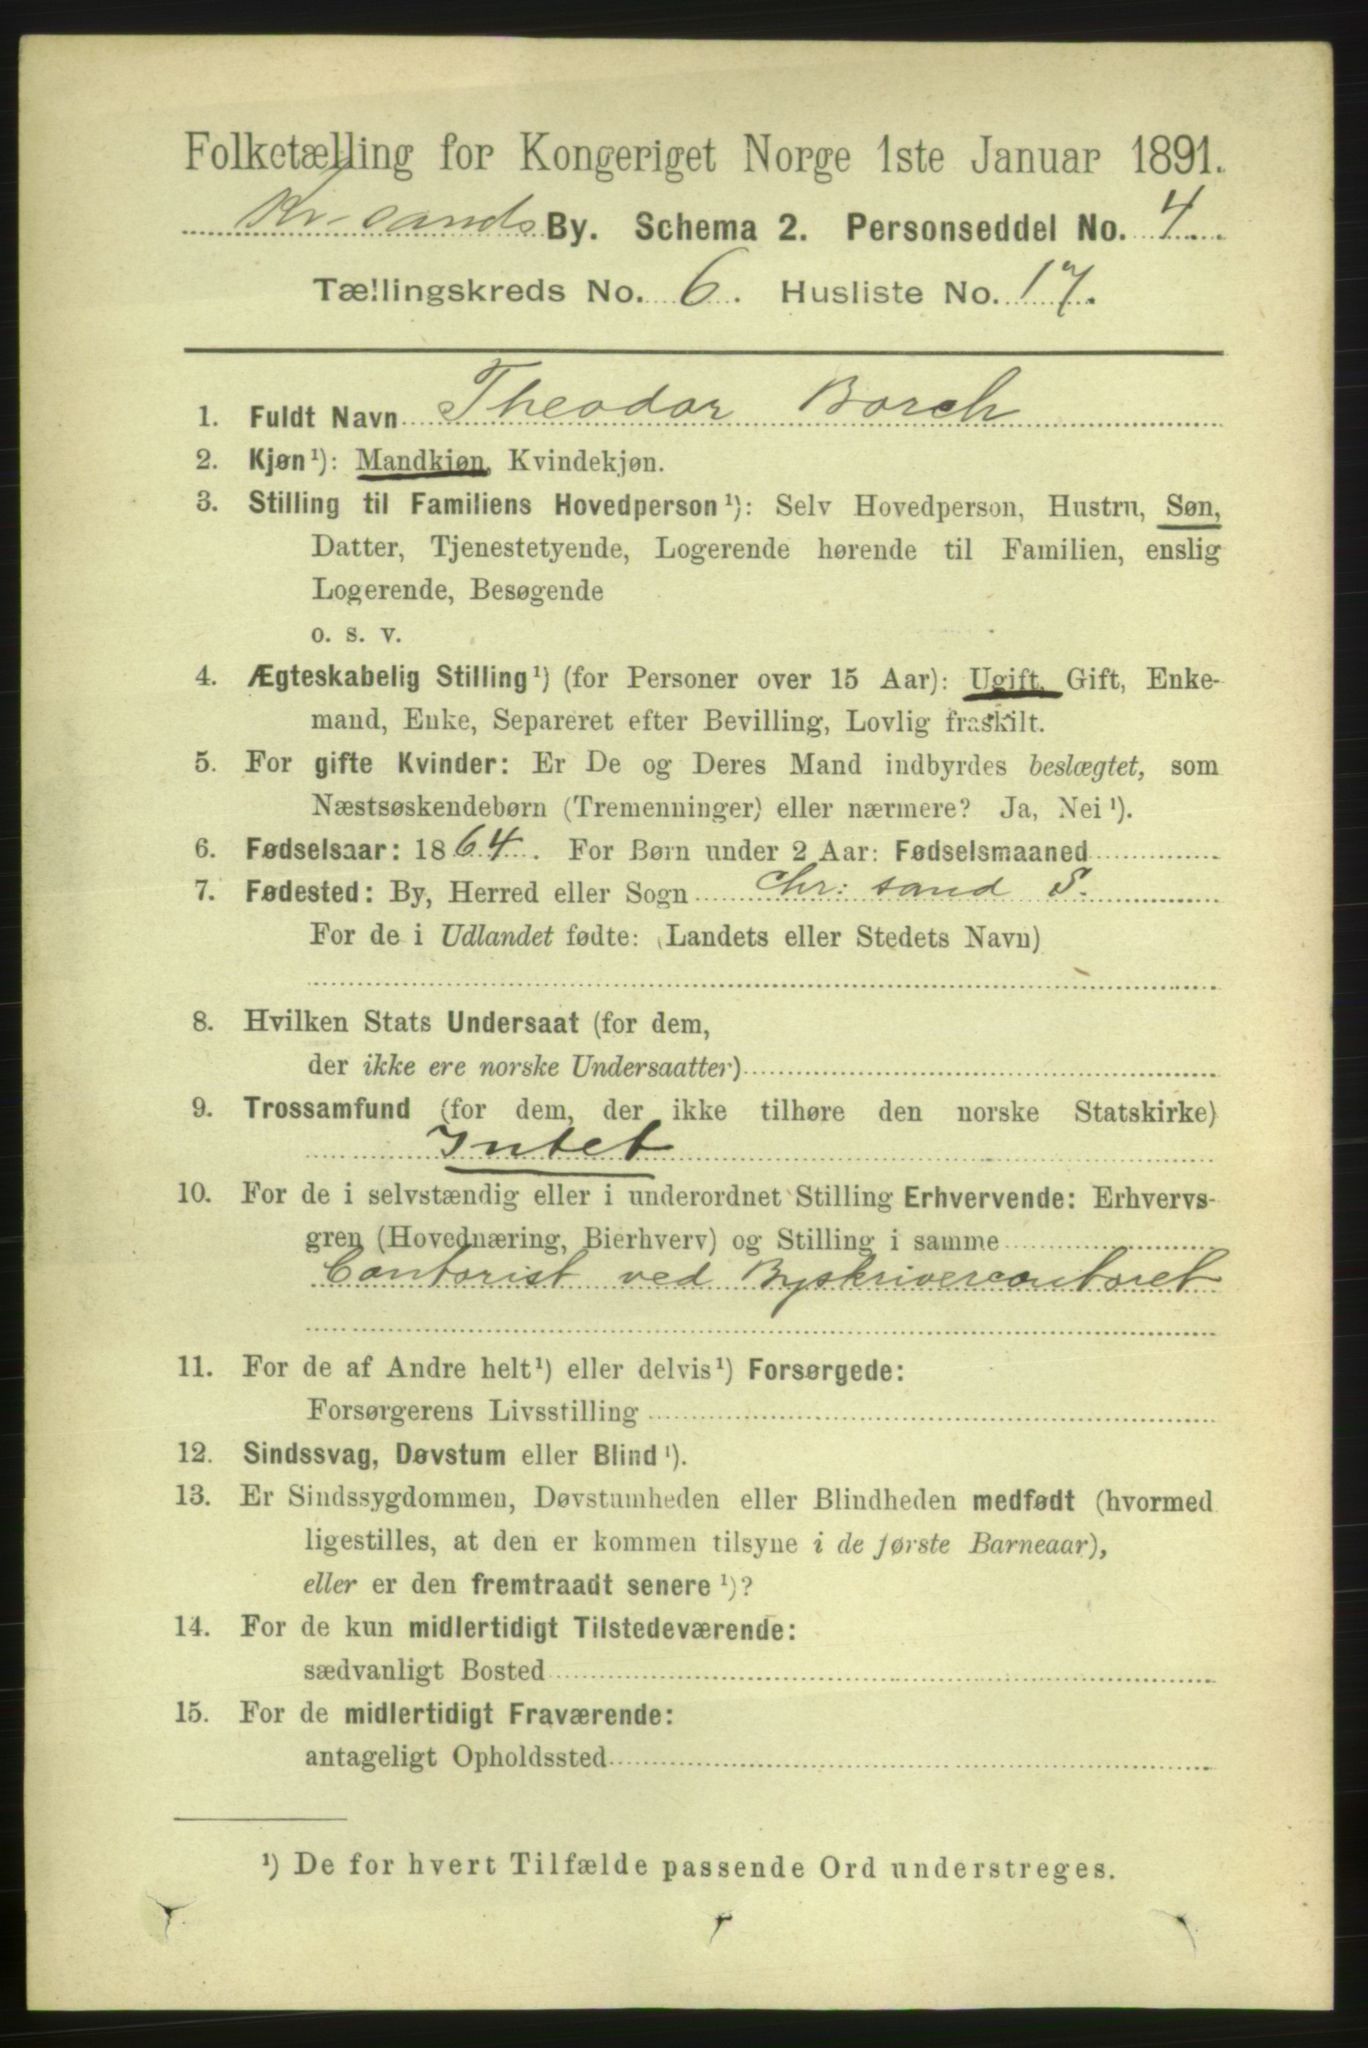 Folketælling for Kongeriget Norge 1ste Januar 1891.
Kr-sands By. Schema 2. Personseddel No. 4.
Tællingskreds No. 6. Husliste No. 17.
1. Fuldt Navn Theodor Borch
2. Kjøn¹): Mandkjøn, Kvindekjøn.
3. Stilling til Familiens Hovedperson¹): Selv Hovedperson, Hustru, Søn,
Datter, Tjenestetyende, Logerende hørende til Familien, enslig
Logerende, Besøgende
o. s. v.
4. Ægteskabelig Stilling¹) (for Personer over 15 Aar): Ugift, Gift, Enke-
mand, Enke, Separeret efter Bevilling, Lovlig fraskilt.
5. For gifte Kvinder: Er De og Deres Mand indbyrdes beslægtet, som
Næstsøskendebørn (Tremenninger) eller nærmere? Ja, Nei¹).
6. Fødselsaar: 1864. For Børn under 2 Aar: Fødselsmaaned
7. Fødested: By, Herred eller Sogn Chr: sand S.
For de i Udlandet fødte: (Landets eller Stedets Navn)
8. Hvilken Stats Undersaat (for dem,
der ikke ere norske Undersaatter)
9. Trossamfund (for dem, der ikke tilhøre den norske Statskirke)
Intet
10. For de i selvstændig eller i underordnet Stilling Erhvervende: Erhvervs-
gren (Hovednæring, Bierhverv) og Stilling i samme
Contorist ved Byskrivercontoret
11. For de af Andre helt¹) eller delvis¹) Forsørgede:
Forsørgerens Livsstilling
12. Sindssvag, Døvstum eller Blind¹).
13. Er Sindssygdommen, Døvstumheden eller Blindheden medfødt (hvormed
ligestilles, at den er kommen tilsyne i de første Barneaar),
eller er den fremtraadt senere¹)?
14. For de kun midlertidigt Tilstedeværende:
sædvanligt Bosted
15. For de midlertidigt Fraværende:
antageligt Opholdssted
¹) De for hvert Tilfælde passende Ord understreges.